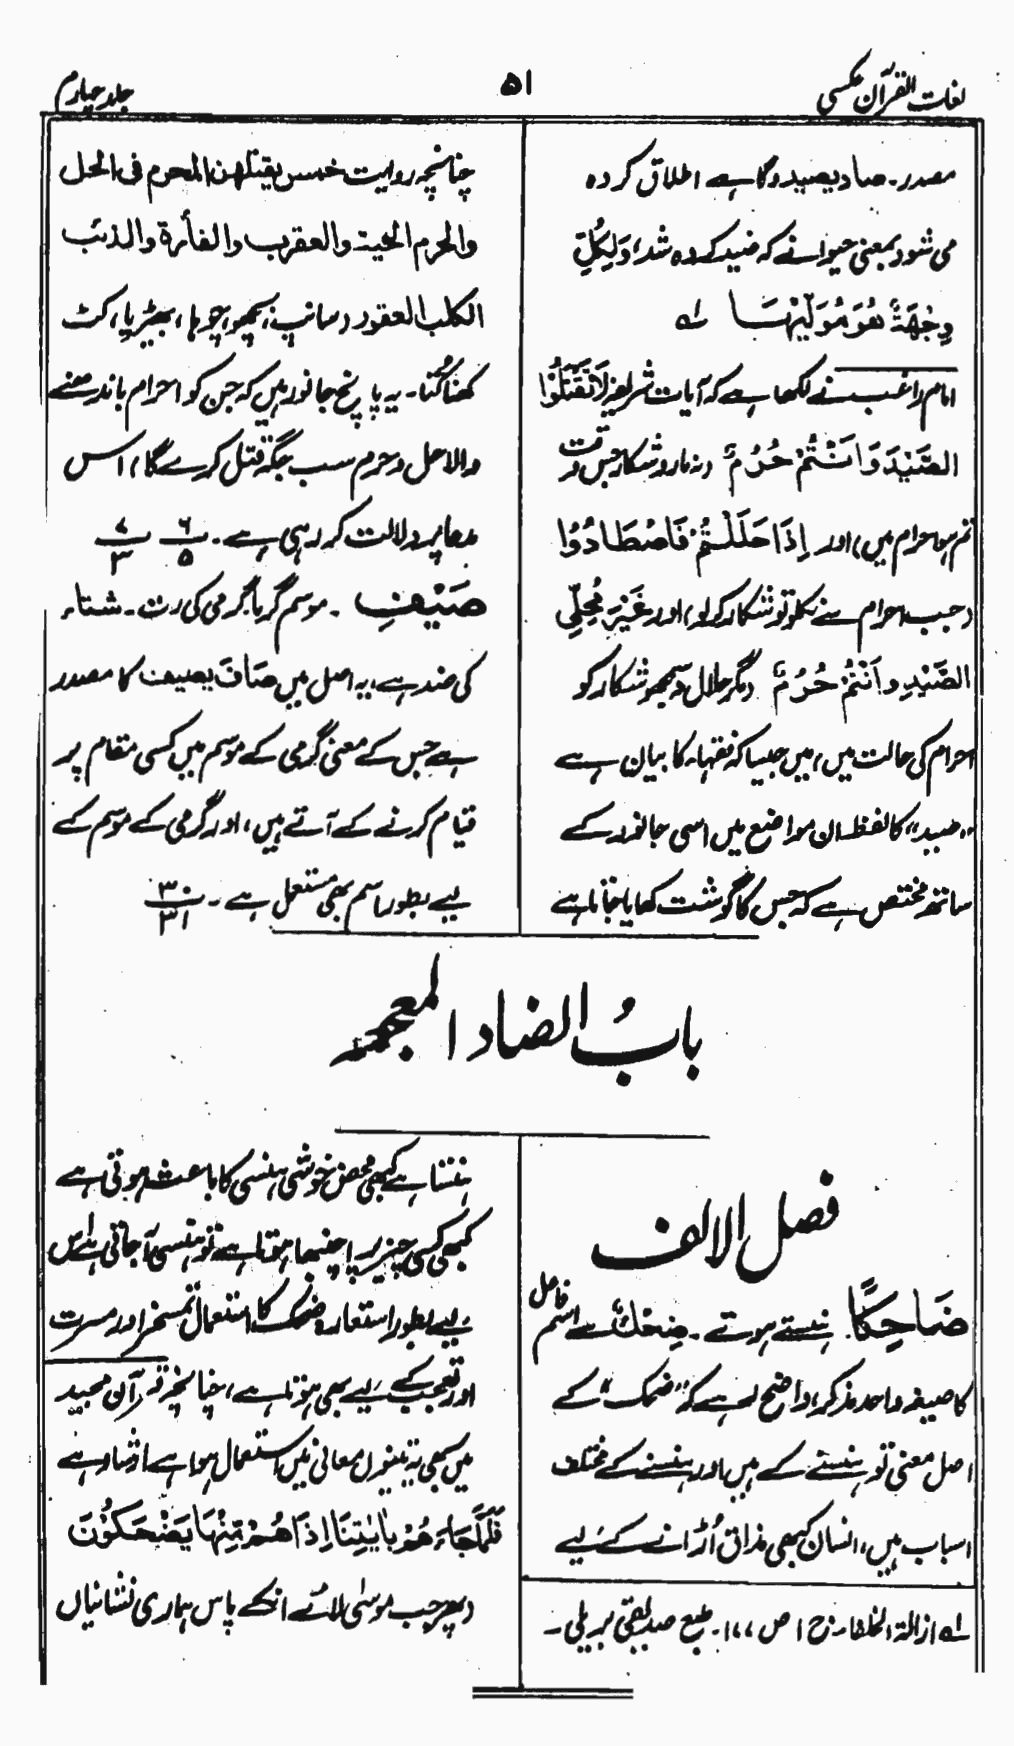 لغات القرآن عکسی
۵۱
جلد چہارم
مصدر۔ صاد یصید وگاہے اطلاق کردہ
می شود بمعنی حیوانے کہ صید کردہ شد، وَلِکُلٍّ
وِجْهَةٌ هُوَ مُوَلِّيْهَا لہ
امام راغب نے لکھا ہے کہ آیات شریفہ لَا تَقْتُلُوْا
الصَّيْدَ وَاَنْتُمْ حُرُمٌ (نہ مارو شکار جس وقت
تم ہو احرام میں) اور اِذَا حَلَلْتُمْ فَاصْطَادُوْا
(جب احرام سے نکلو تو شکار کرلو) اور غَيْرَ مُحِلِّي
الصَّيْدِ وَاَنْتُمْ حُرُمٌ (مگر حلال نہ سمجھو شکار کو
احرام کی حالت میں) میں جیسا کہ فقہاء کا بیان ہے
"صید" کا لفظ ان مواضع میں اسی جانور کے
ساتھ مختص ہے کہ جس کا گوشت کھایا جاتا ہے
چنانچہ روایت خمس یقتلهن المحرم فی الحل
والحرم الحیۃ والعقرب والفأرة والذئب
الکلب العقور (سانپ، بچھو، چوہا، بھیڑیا، کٹ
کھنا کُتا۔ یہ پانچ جانور ہیں کہ جن کو احرام باندھنے
والا حل و حرم سب جگہ قتل کرے گا) اس
مدعا پر دلالت کر رہی ہے۔ ۶/۵ ۷/۳
صَيْفِ ۔ موسم گرما، گرمی کی رت۔ شتاء
کی ضد ہے، یہ اصل میں صَافَ یصیف کا مصدر
ہے جس کے معنی گرمی کے موسم میں کسی مقام پر
قیام کرنے کے آتے ہیں، اور گرمی کے موسم کے
لیے بطور اسم بھی مستعمل ہے۔ ۳۰/۳۱
بابُ الضاد المعجمۃ
فصل الالف
ضَاحِکًا۔ ہنستے ہوتے ۔ ضِحْکٌ سے اسم فاعل
کا صیغہ واحد مذکر، واضح رہے کہ "ضحک" کے
اصل معنی تو ہنسنے کے ہیں اور ہنسنے کے مختلف
اسباب ہیں، انسان کبھی مذاق اُڑانے کے لیے
لہ ازالۃ الخلفاء ج ۱ ص ۱۷۷۔ طبع صدیقی بریلی۔
ہنستا ہے کبھی محض خوشی ہنسی کا باعث ہوتی ہے
کبھی کسی چیز پر اچنبھا ہوتا ہے تو ہنسی آجاتی ہے اس
لیے بطور استعارہ ضحک کا استعمال تمسخر اور مسرت
اور تعجب کے لیے بھی ہوتا ہے، چنانچہ قرآن مجید
میں بھی یہ تینوں معانی میں استعمال ہوا ہے ارشاد ہے
فَلَمَّا جَاءَهُمْ بِاٰيٰتِنَا اِذَا هُمْ مِّنْهَا يَضْحَكُوْنَ
(پھر جب موسٰی لائے انکے پاس ہماری نشانیاں